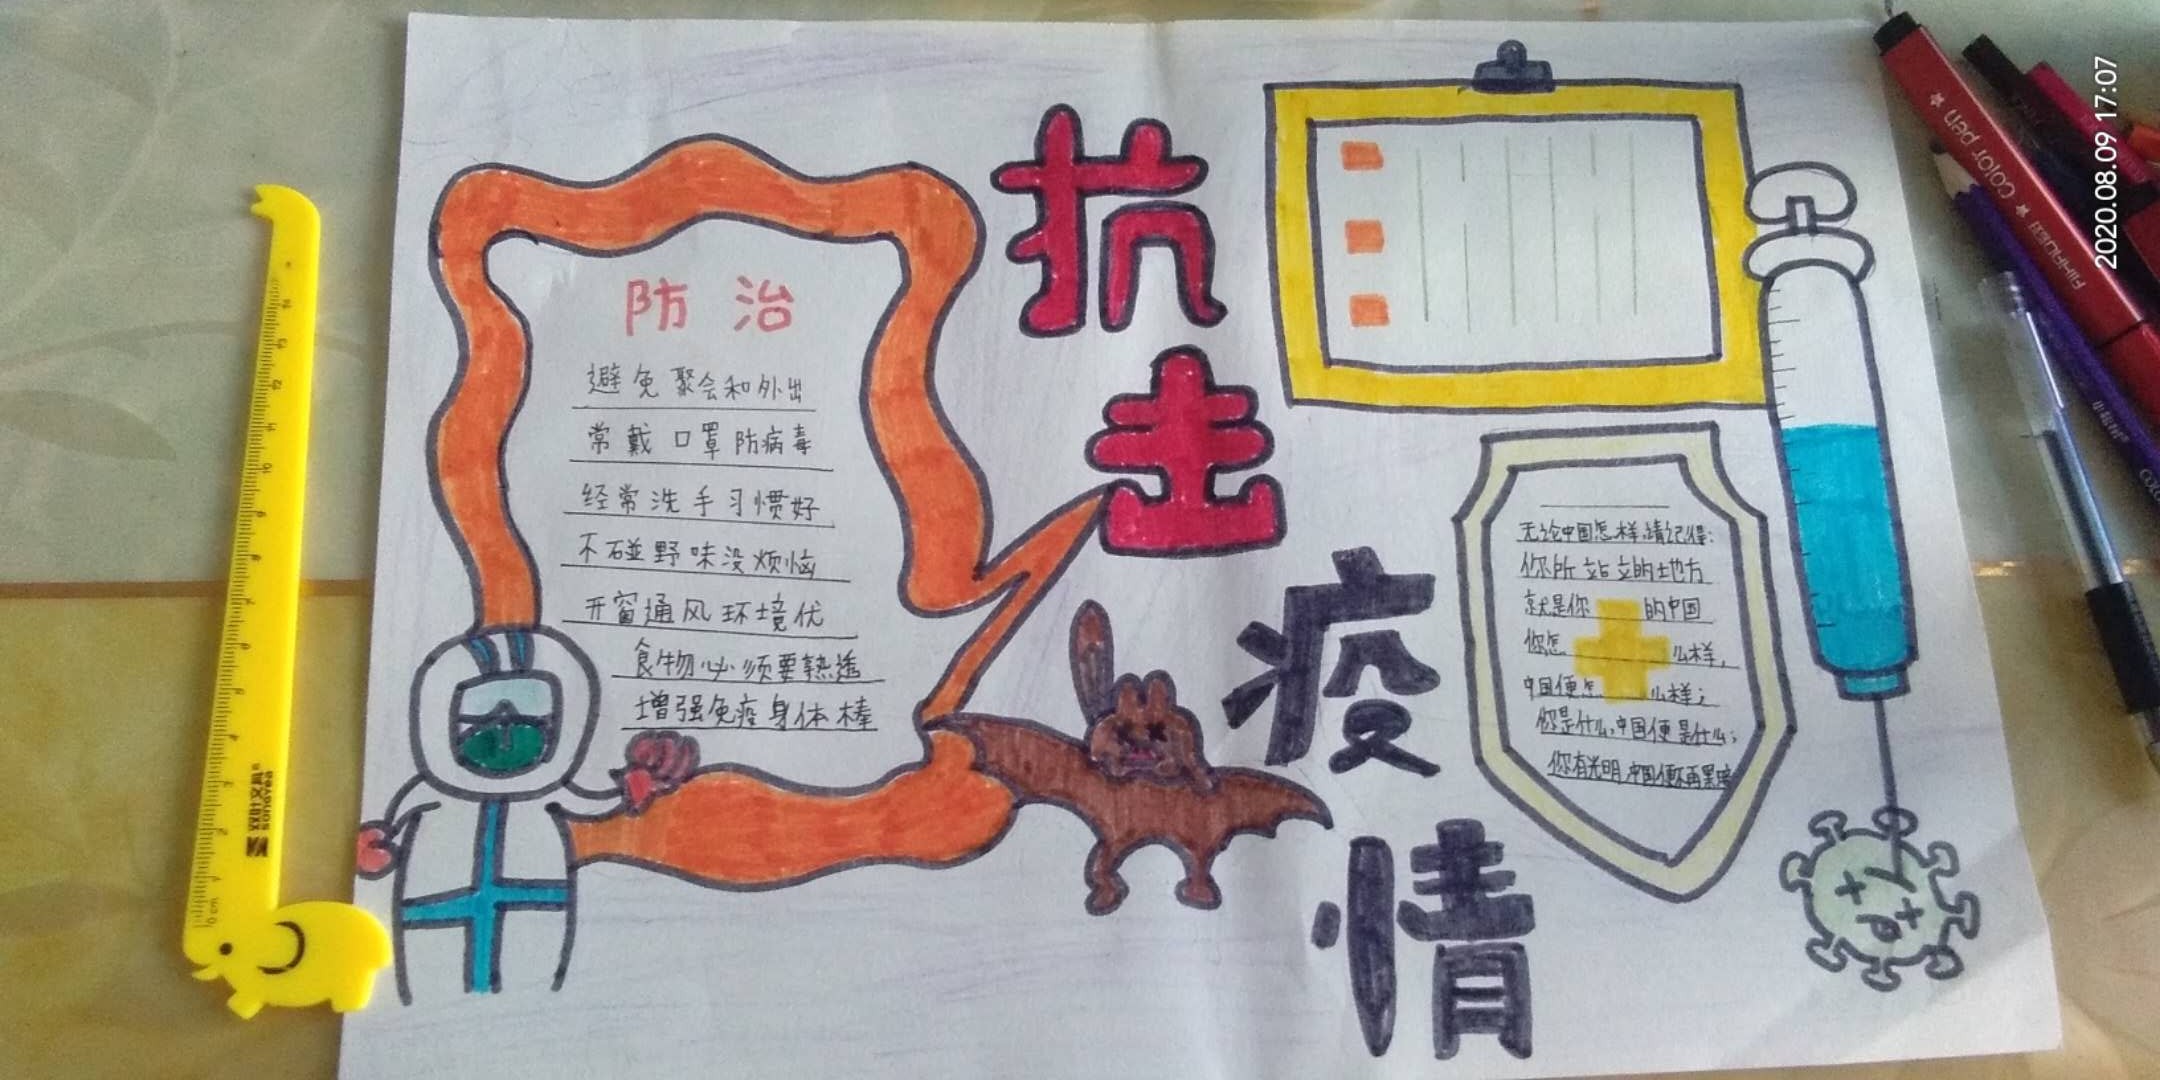 抗击
疫情
防治
避免聚会和外出
常戴口罩防病毒
经常洗手习惯好
不碰野味没烦恼
开窗通风环境优
食物必须要熟透
增强免疫身体棒
无论中国怎样,请记得:
你所站立的地方
就是你的中国
你怎么样,
中国便怎么样;
你是什么,中国便是什么;
你有光明,中国便不再黑暗
2020.08.09 17:07
Color pen
0cm